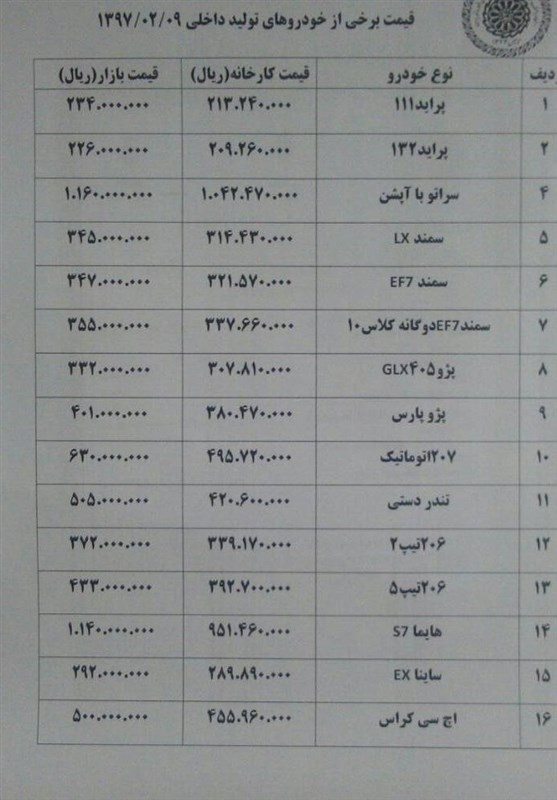 قیمت برخی از خودروهای تولید داخلی ۱۳۹۷/۰۲/۰۹
ردیف نوع خودرو قیمت کارخانه(ریال) قیمت بازار(ریال)
۱ پراید۱۱۱ ۲۱۳.۲۴۰.۰۰۰ ۲۳۴.۰۰۰.۰۰۰
۲ پراید۱۳۲ ۲۰۹.۲۶۰.۰۰۰ ۲۲۶.۰۰۰.۰۰۰
۴ سراتو با آپشن ۱.۰۴۲.۴۷۰.۰۰۰ ۱.۱۶۰.۰۰۰.۰۰۰
۵ سمند LX ۳۱۴.۴۳۰.۰۰۰ ۳۴۵.۰۰۰.۰۰۰
۶ سمند EF7 ۳۲۱.۵۷۰.۰۰۰ ۳۴۷.۰۰۰.۰۰۰
۷ سمندEF7دوگانه کلاس۱۰ ۳۳۷.۶۶۰.۰۰۰ ۳۵۵.۰۰۰.۰۰۰
۸ پژو۴۰۵GLX ۳۰۷.۸۱۰.۰۰۰ ۳۳۲.۰۰۰.۰۰۰
۹ پژو پارس ۳۸۰.۴۷۰.۰۰۰ ۴۰۱.۰۰۰.۰۰۰
۱۰ ۲۰۷اتوماتیک ۴۹۵.۷۲۰.۰۰۰ ۶۳۰.۰۰۰.۰۰۰
۱۱ تندر دستی ۴۲۰.۶۰۰.۰۰۰ ۵۰۵.۰۰۰.۰۰۰
۱۲ ۲۰۶تیپ۲ ۳۳۹.۱۷۰.۰۰۰ ۳۷۲.۰۰۰.۰۰۰
۱۳ ۲۰۶تیپ۵ ۳۹۲.۷۰۰.۰۰۰ ۴۳۳.۰۰۰.۰۰۰
۱۴ هایما S7 ۹۵۱.۴۶۰.۰۰۰ ۱.۱۴۰.۰۰۰.۰۰۰
۱۵ ساینا EX ۲۸۹.۸۹۰.۰۰۰ ۲۹۲.۰۰۰.۰۰۰
۱۶ اچ سی کراس ۴۵۵.۹۶۰.۰۰۰ ۵۰۰.۰۰۰.۰۰۰